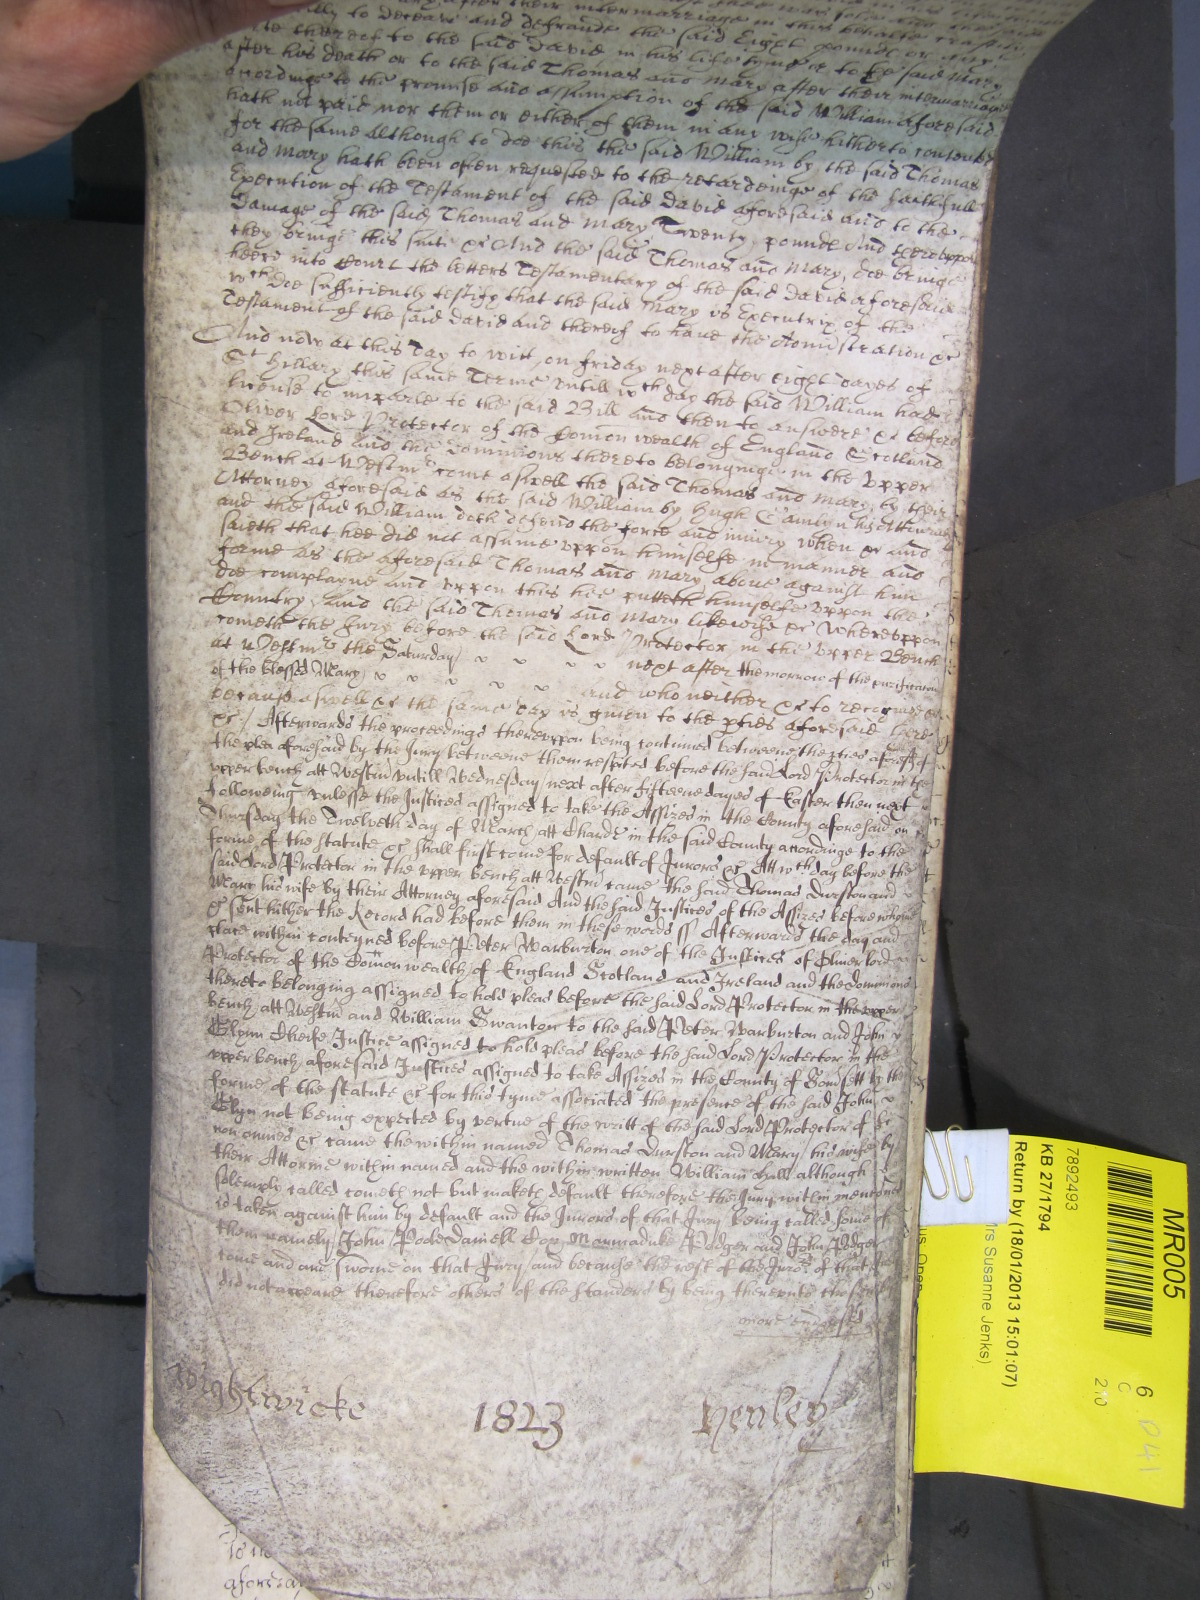 any after their intermarriage in this behalfe craftily
to deceave and defraude the said Eight pounds or any
thereof to the said David in his life tyme or to the said Mary
after his death or to the said Thomas and Mary after their intermarriage
accordinge to the promise and assumption of the said William aforesaid
hath not paid nor them or either of them in any wise hitherto contented
for the same although to doe this the said William by the said Thomas
and Mary hath been often requested to the retardeinge of the faithfull
Execution of the Testament of the said David aforesaid and to the
Damage of the said Thomas and Mary Twenty pounds And thereuppon
they bringe this suite &c And the said Thomas and Mary doe bringe
heere into Court the letters Testamentary of the said David aforesaid
wch doe sufficiently testify that the said Mary is Executrix of the
Testament of the said David and thereof to have the Administration &c
And now at this day to witt on Friday next after eight dayes of
St Hillary this same Terme untill wch day the said William had
license to imparle to the said Bill and then to answere &c before
Oliver Lord Protector of the Comon wealth of England Scotland
and Ireland And the Dominions thereto belonginge in the upper
Bench at Westmr come aswell the said Thomas and Mary by their
Attorney aforesaid as the said William by Hugh his Attorney
and the said William doth defend the force and iniury when &c and
saieth that hee did not assume uppon himselfe in manner and
forme as the aforesaid Thomas and Mary above against him
doe complayne And uppon this hee putteth himselfe uppon the
Country And the said Thomas and Mary likewise &c Whereuppon
cometh the Jury before the said Lord Protector in the upper Bench
at Westmr the Saturday next after the morrow of the purification
of the blessed Mary and who neither &c to recognize &c
because aswell &c the same day is given to the pties aforesaid here
&c / Afterwards the proceedings thereuppon being continued betweene the pties aforesd of
the plea aforesaid by the Jury betweene them respited before the said Lord Protector in the
upper bench att Westm untill Wednesday next after fifteene dayes of Easter then next
followeing unlesse the Justices assigned to take the Assizes in the County aforesaid on
Thursday the Twelveth day of March att Chard in the said County accordinge to the
forme of the statute &c shall first come for default of Jurors &c Att wch day before the
said Lord Protector in the upper bench att Westm came the said Thomas Durston and
Mary his wife by their Attorney aforesaid And the said Justices of the Assizes before whome
&c sent hither the Record had before them in these words ss Afterwards the day and
place within conteyned before Peter Warburton one of the Justices of Oliver lord
Protector of the Comon wealth of England Scotland and Ireland and the dominions
thereto belonging assigned to hold pleas before the said Lord Protector in the upper
bench att Westm and William Swanton to the said Peter Warburton and John
Glynn Cheife Justice assigned to hold pleas before the said Lord Protector in the
upper bench aforesaid Justices assigned to take Assizes in the County of Somsett by the
forme of the statute &c for this tyme associated the presence of the said John
Glyn not being expected by vertue of the writt of the said Lord Protector of Si
non omnes &c came the within named Thomas Durston and Mary his wife by
their Attorne within named and the within written William Hall although
solemply called cometh not but maketh default therefore the Jury within menconed
is taken against him by default and the Jurors of that Jury being called some of
them namely John Poole Daniell Marmaduke Podger and John Podger
come and are sworne on that Jury and because the rest of the Juro of that
did not appeare therefore others of the standers by being thereunto
more
Wightwicke 1823 Henley
MR005
6
C
210
D41
7892493
KB 27/1794
Return by (18/01/2013 15:01:07)
Mrs Susanne Jenks)
aforesay